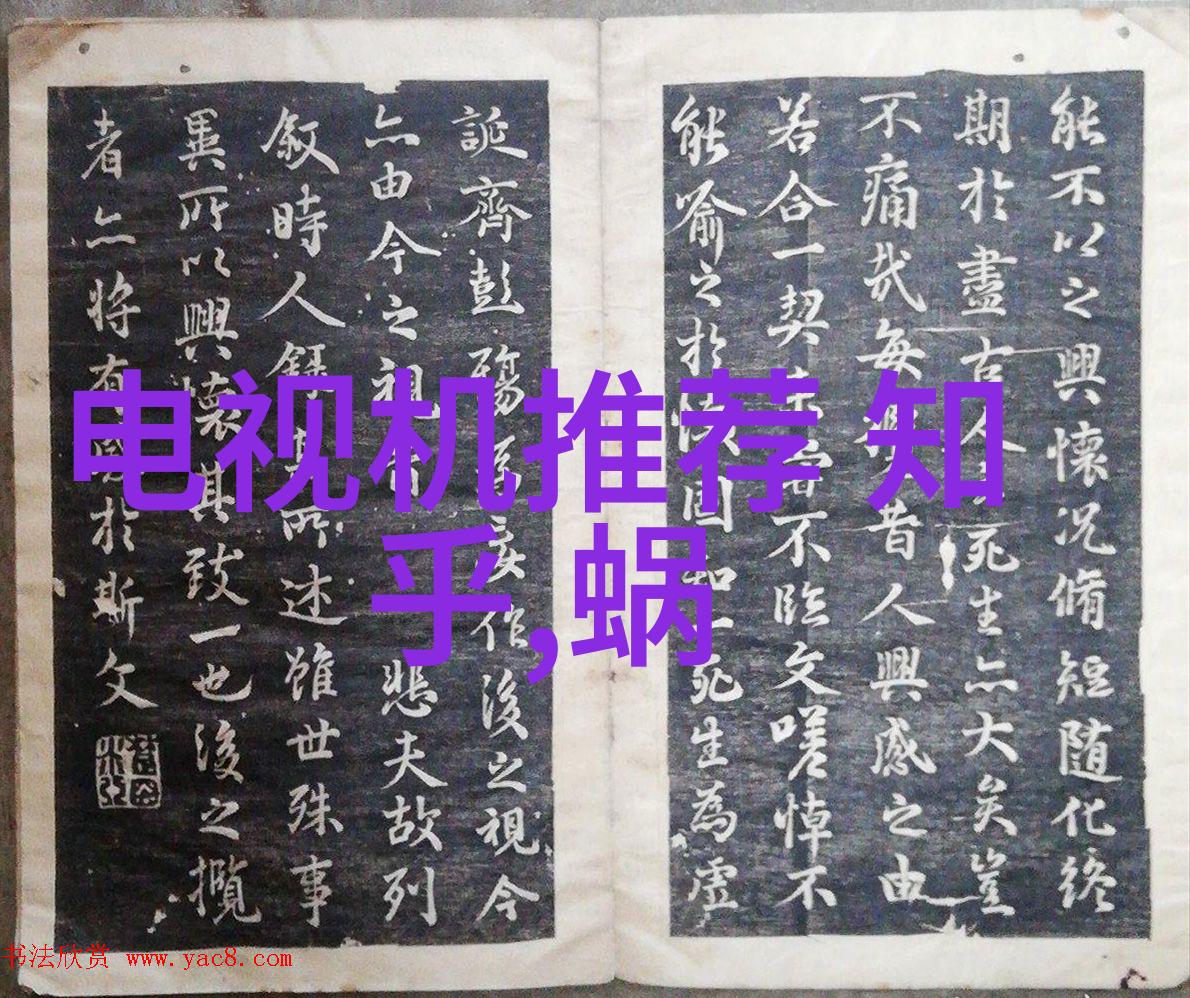 能不以之興懷況脩短随化終
期於盡古人死生亦大矣豈
不痛哉每昔人興感之由
若合一契不臨文嗟悼不
能喻之於懷固知一死生為虛
誕齊彭殤為妄作後之視今
亦由今之視悲夫故列
敘時人錄其所述雖世殊事
異所以興懷其致一也後之攬
者亦將有感於斯文
电视机推荐 知
乎,蜗
书法欣赏 www.yac8.com